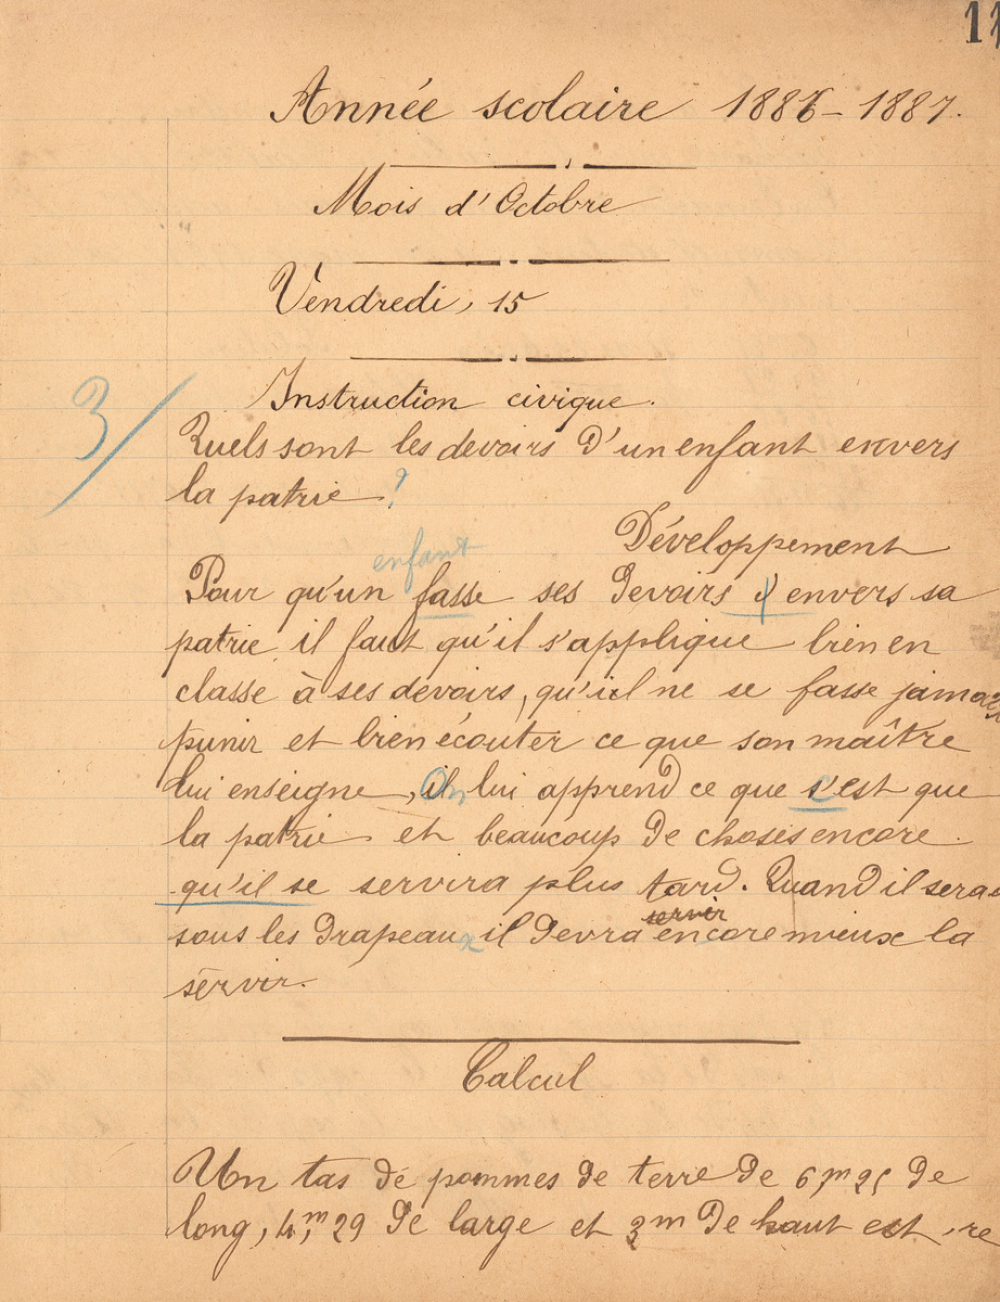 11
Année scolaire 1886-1887.
Mois d'Octobre
Vendredi, 15
Instruction civique.
3/
Quels sont les devoirs d'un enfant envers
la patrie ?
Développement
enfant
Pour qu'un fasse ses devoirs envers sa
patrie, il faut qu'il s'applique bien en
classe à ses devoirs, qu'il ne se fasse jamais
punir et bien écouter ce que son maître
lui enseigne, il On lui apprend ce que s'est que
la patrie et beaucoup de choses encore
qu'il se servira plus tard. Quand il sera
servir
sous les drapeaux il devra encore mieux la
servir.
Calcul
Un tas de pommes de terre de 6,m25 de
long, 4,m29 de large et 3m de haut est re